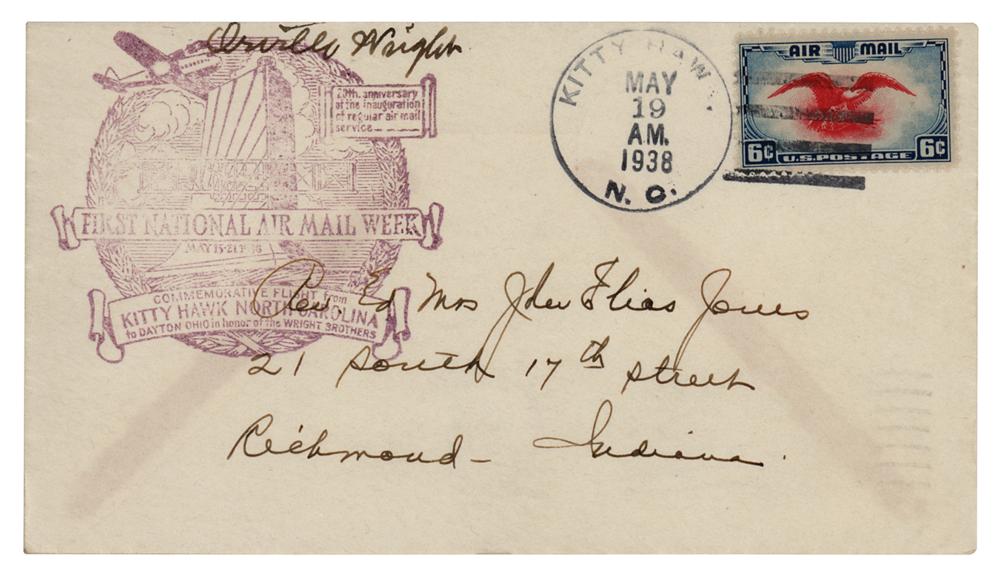 Orville Wright
20th. anniversary
of the inauguration
of regular air mail
service
FIRST NATIONAL AIR MAIL WEEK
MAY 15-21
COMMEMORATIVE FLIGHT from
KITTY HAWK NORTH CAROLINA
to DAYTON OHIO in honor of the WRIGHT BROTHERS
KITTY HAW
MAY
19
A.M.
1938
N. C.
AIR MAIL
6¢ U.S. POSTAGE 6¢
Rev. Ed Mrs John Elias Jones
21 South 17th Street
Richmond - Indiana.